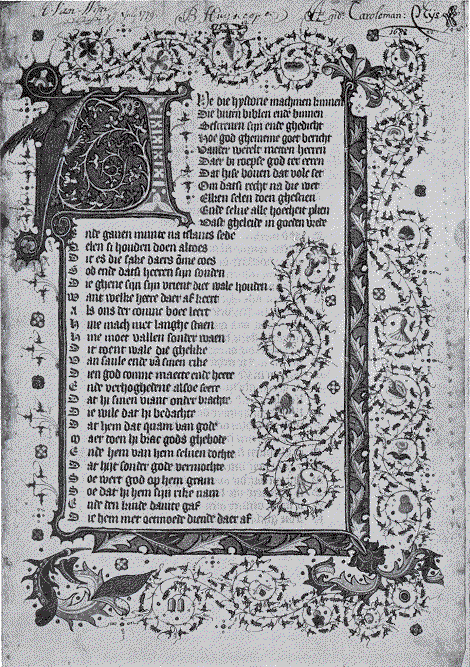 Jan
B. Huydecoper
Caroleman:
Ne die hystorie machmen kinnen
Die buten biblen ende binnen
Bescreuen sijn ende ghedicht
Hoe god ghemeine goet bericht
Vander werelt meneu herren
Daer bi roepse god ter eeren
Dat hise bouen dat volc set
Om datsi recht na die wet
Ellken selen doen ghesinen
Ende selue alle hoecheit plien
Waest gheleide in goeden vrede
nde gauen munte na tslants sede
D elen si houden doen altoes
D it es die sake daers ome coes
S od ende datsi heeren sijn sonden
D ie ghene sijn sijn vrient diet wale houden
W ant welke heere daer af keert
A ls ons der coninc boec leert
H ine mach niet langhe staen
H ine moet vallen sonder waen
D it toent wale die ghelike
V an saule ende va sinen rike
D ien god coninc maecte ende heere
E nde verhoghedene alsoe seere
D at hi sinen viant onder brachte
D ie wile dat hi bedachte
D at hem dat quam van gode
M aer toen hi brac gods ghebode
E nde hem van hem seluen dochte
D at hijt sonder gode vermochte
S oe wert god op hem gram
S oe dat hi hem sijn rike nam
E nde den kinde dauite gaf
D ie hem met oetmoede diende daer af